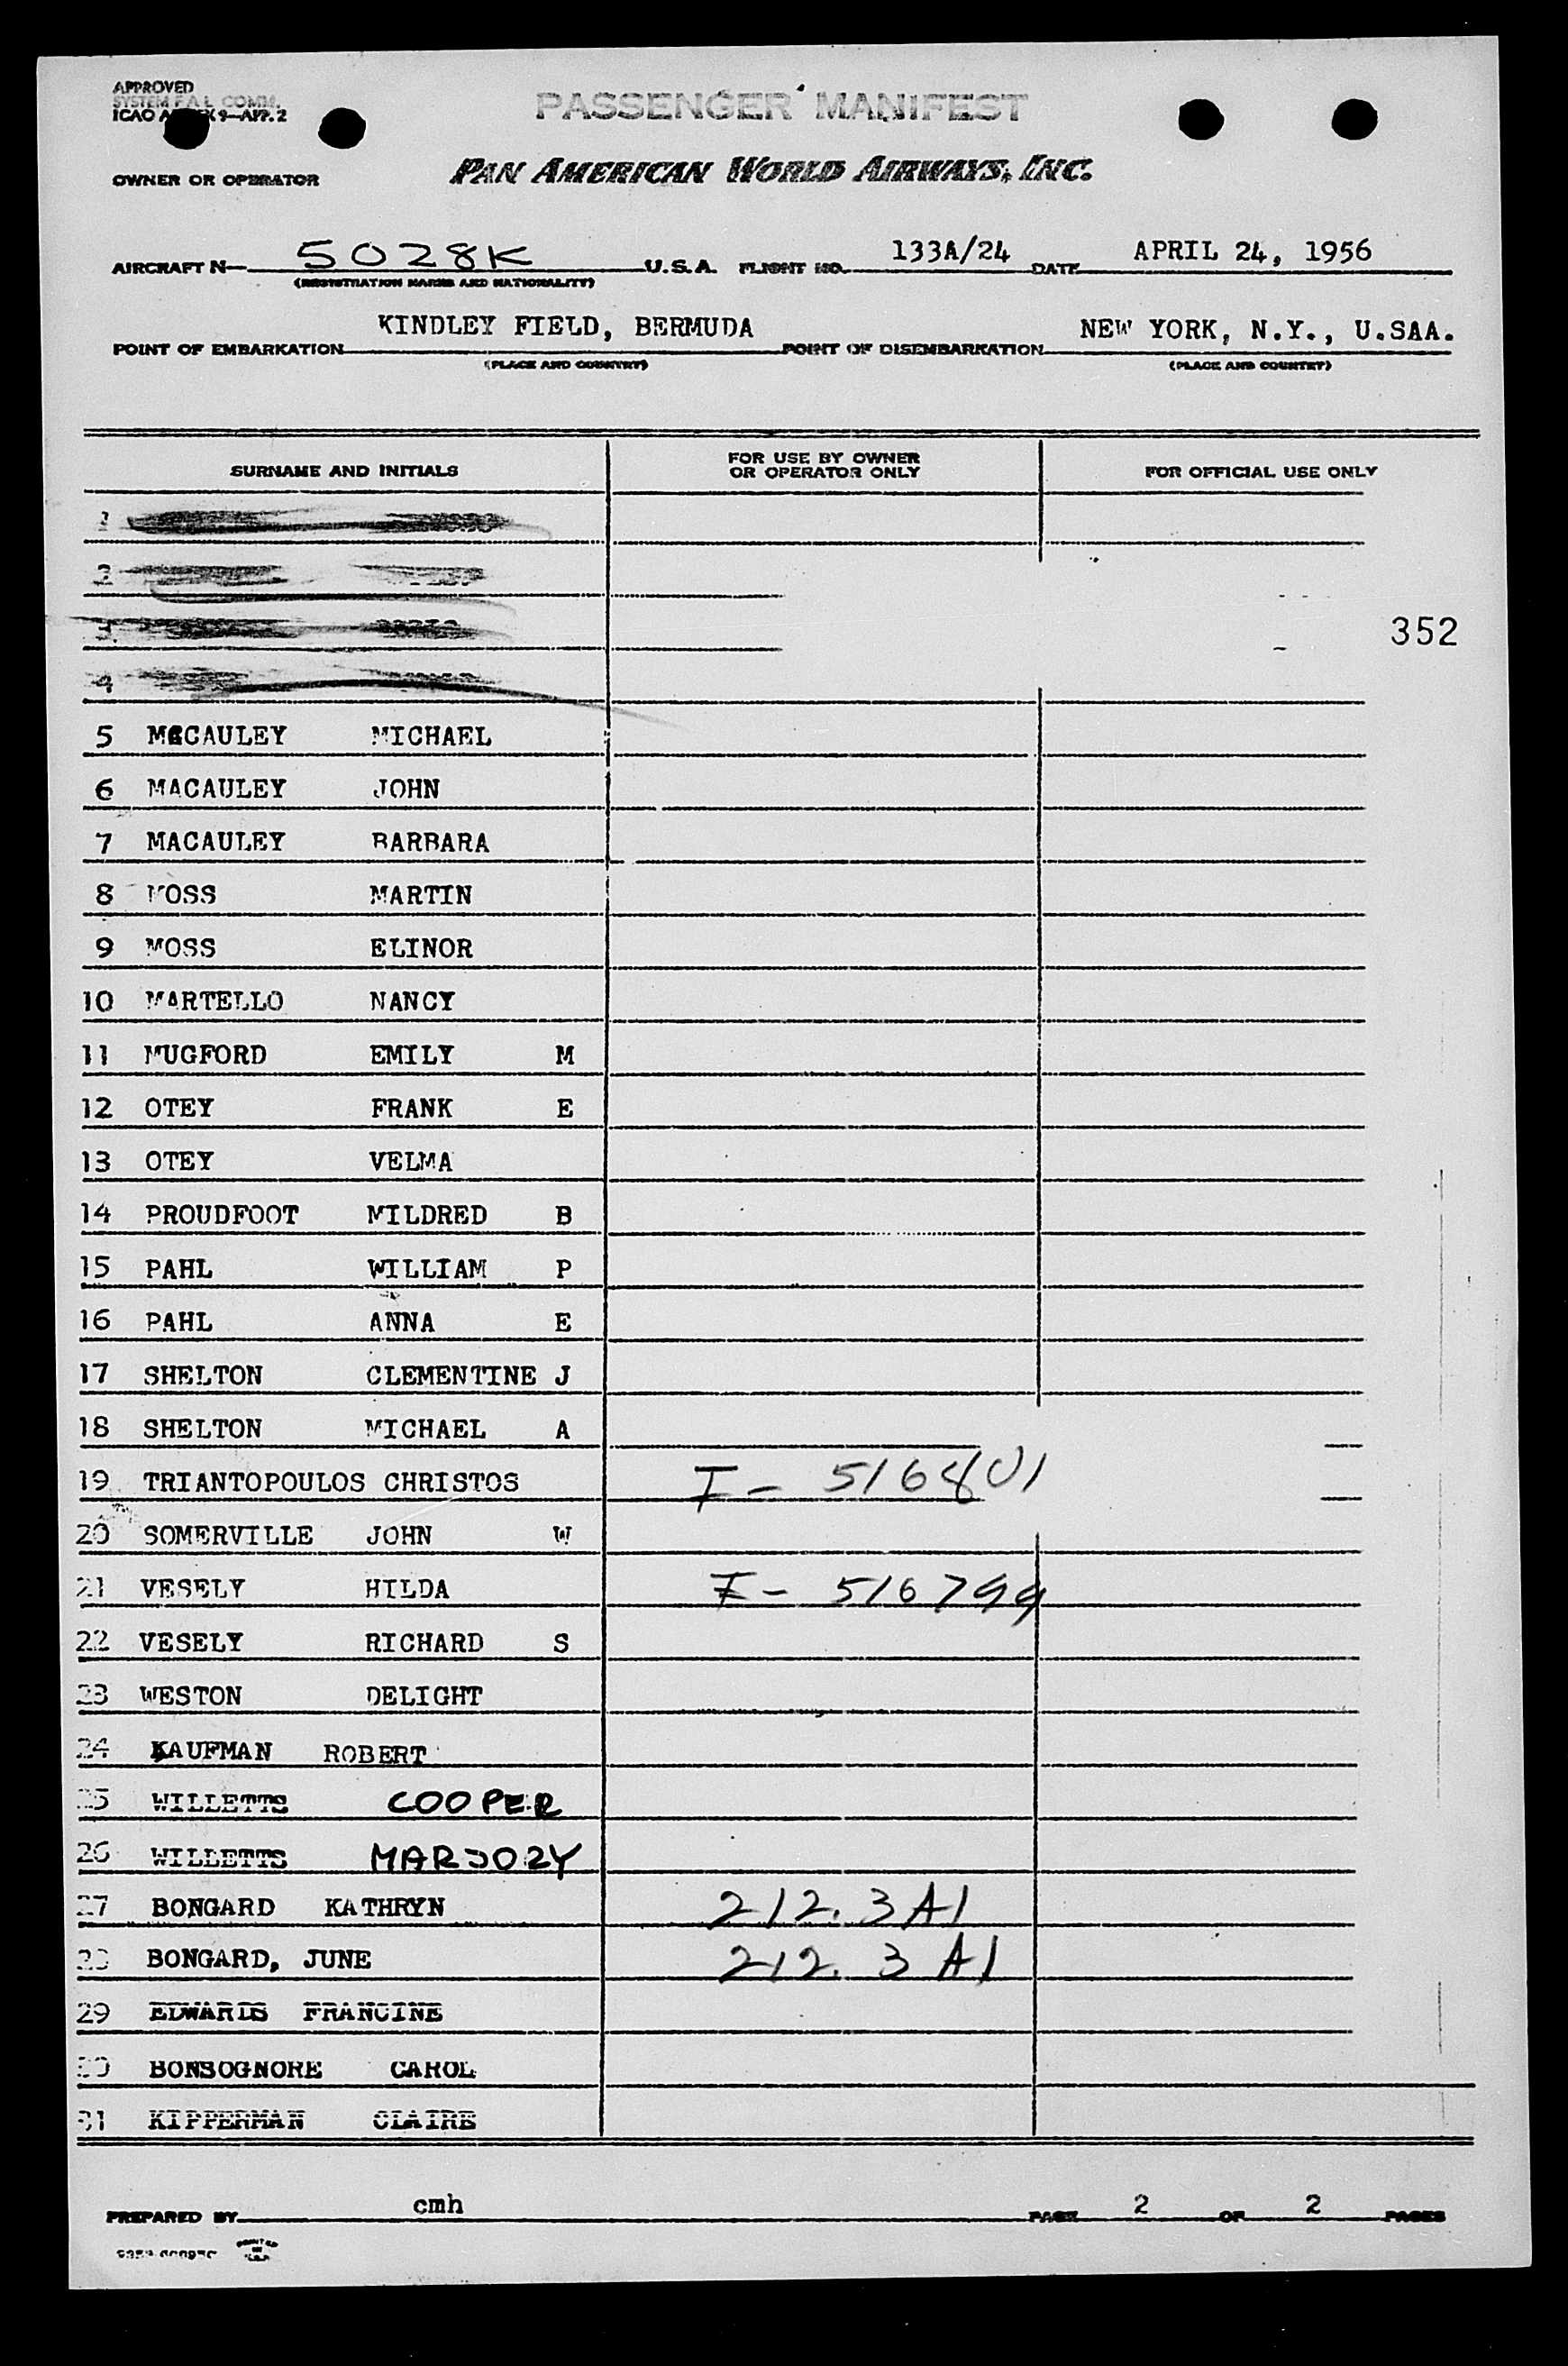 APPROVED
SYSTEM F.A.L. COMM.
ICAO 9—APP. 2
PASSENGER MANIFEST
OWNER OR OPERATOR PAN AMERICAN WORLD AIRWAYS, INC.
AIRCRAFT N— 5028K U.S.A. FLIGHT NO. 133A/24 DATE APRIL 24, 1956
(REGISTRATION MARKS AND NATIONALITY)
POINT OF EMBARKATION KINDLEY FIELD, BERMUDA POINT OF DISEMBARKATION NEW YORK, N.Y., U.SAA.
(PLACE AND COUNTRY) (PLACE AND COUNTRY)
SURNAME AND INITIALS FOR USE BY OWNER OR OPERATOR ONLY FOR OFFICIAL USE ONLY
1
2
3 352
4
5 MCCAULEY MICHAEL
6 MACAULEY JOHN
7 MACAULEY BARBARA
8 MOSS MARTIN
9 MOSS ELINOR
10 MARTELLO NANCY
11 MUGFORD EMILY M
12 OTEY FRANK E
13 OTEY VELMA
14 PROUDFOOT MILDRED B
15 PAHL WILLIAM P
16 PAHL ANNA E
17 SHELTON CLEMENTINE J
18 SHELTON MICHAEL A
19 TRIANTOPOULOS CHRISTOS I - 516801
20 SOMERVILLE JOHN W
21 VESELY HILDA I - 516799
22 VESELY RICHARD S
23 WESTON DELIGHT
24 KAUFMAN ROBERT
25 WILLETTS COOPER
26 WILLETTS MARJORY
27 BONGARD KATHRYN 212.3 A1
28 BONGARD, JUNE 212.3 A1
29 EDWARDS FRANCINE
30 BONSOGNORE CAROL
31 KIPPERMAN CLAIRE
PREPARED BY cmh PAGE 2 OF 2 PAGES
PRINTED IN U.S.A.